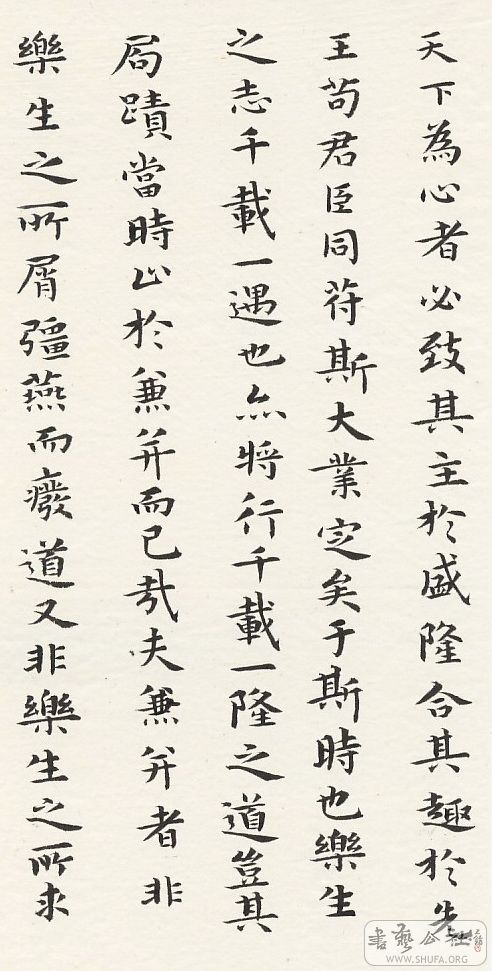 天下為心者必致其主於盛隆合其趣於先
王苟君臣同苻斯大業定矣于斯時也樂生
之志千載一遇也亦將行千載一隆之道豈其
局蹟當時止於兼并而已哉夫兼并者非
樂生之所屑彊燕而廢道又非樂生之所求
書藝公社
WWW.SHUFA.ORG